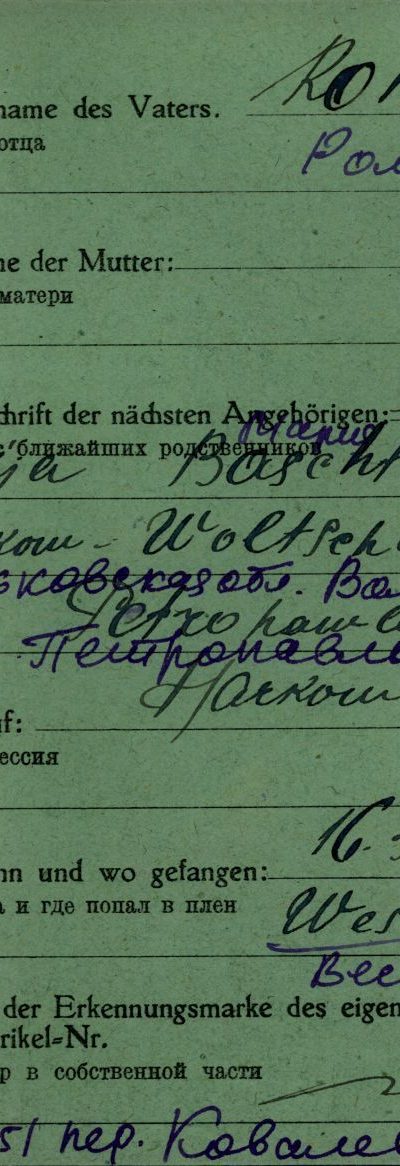 name des Vaters.
отца
Ром
ne der Mutter:
матери
chrift der nächsten Angehörigen:
Мария
с ближайших родственников
ja Bascht
kow - Woltsch
ьковская обл. Во
Petropawl
Петропавл
Harkow
uf:
ессия
16.
nn und wo gefangen:
а и где попал в плен
Wes
Вес
der Erkennungsmarke des eigen
rikel=Nr.
р в собственной части
51 пер. Ковале